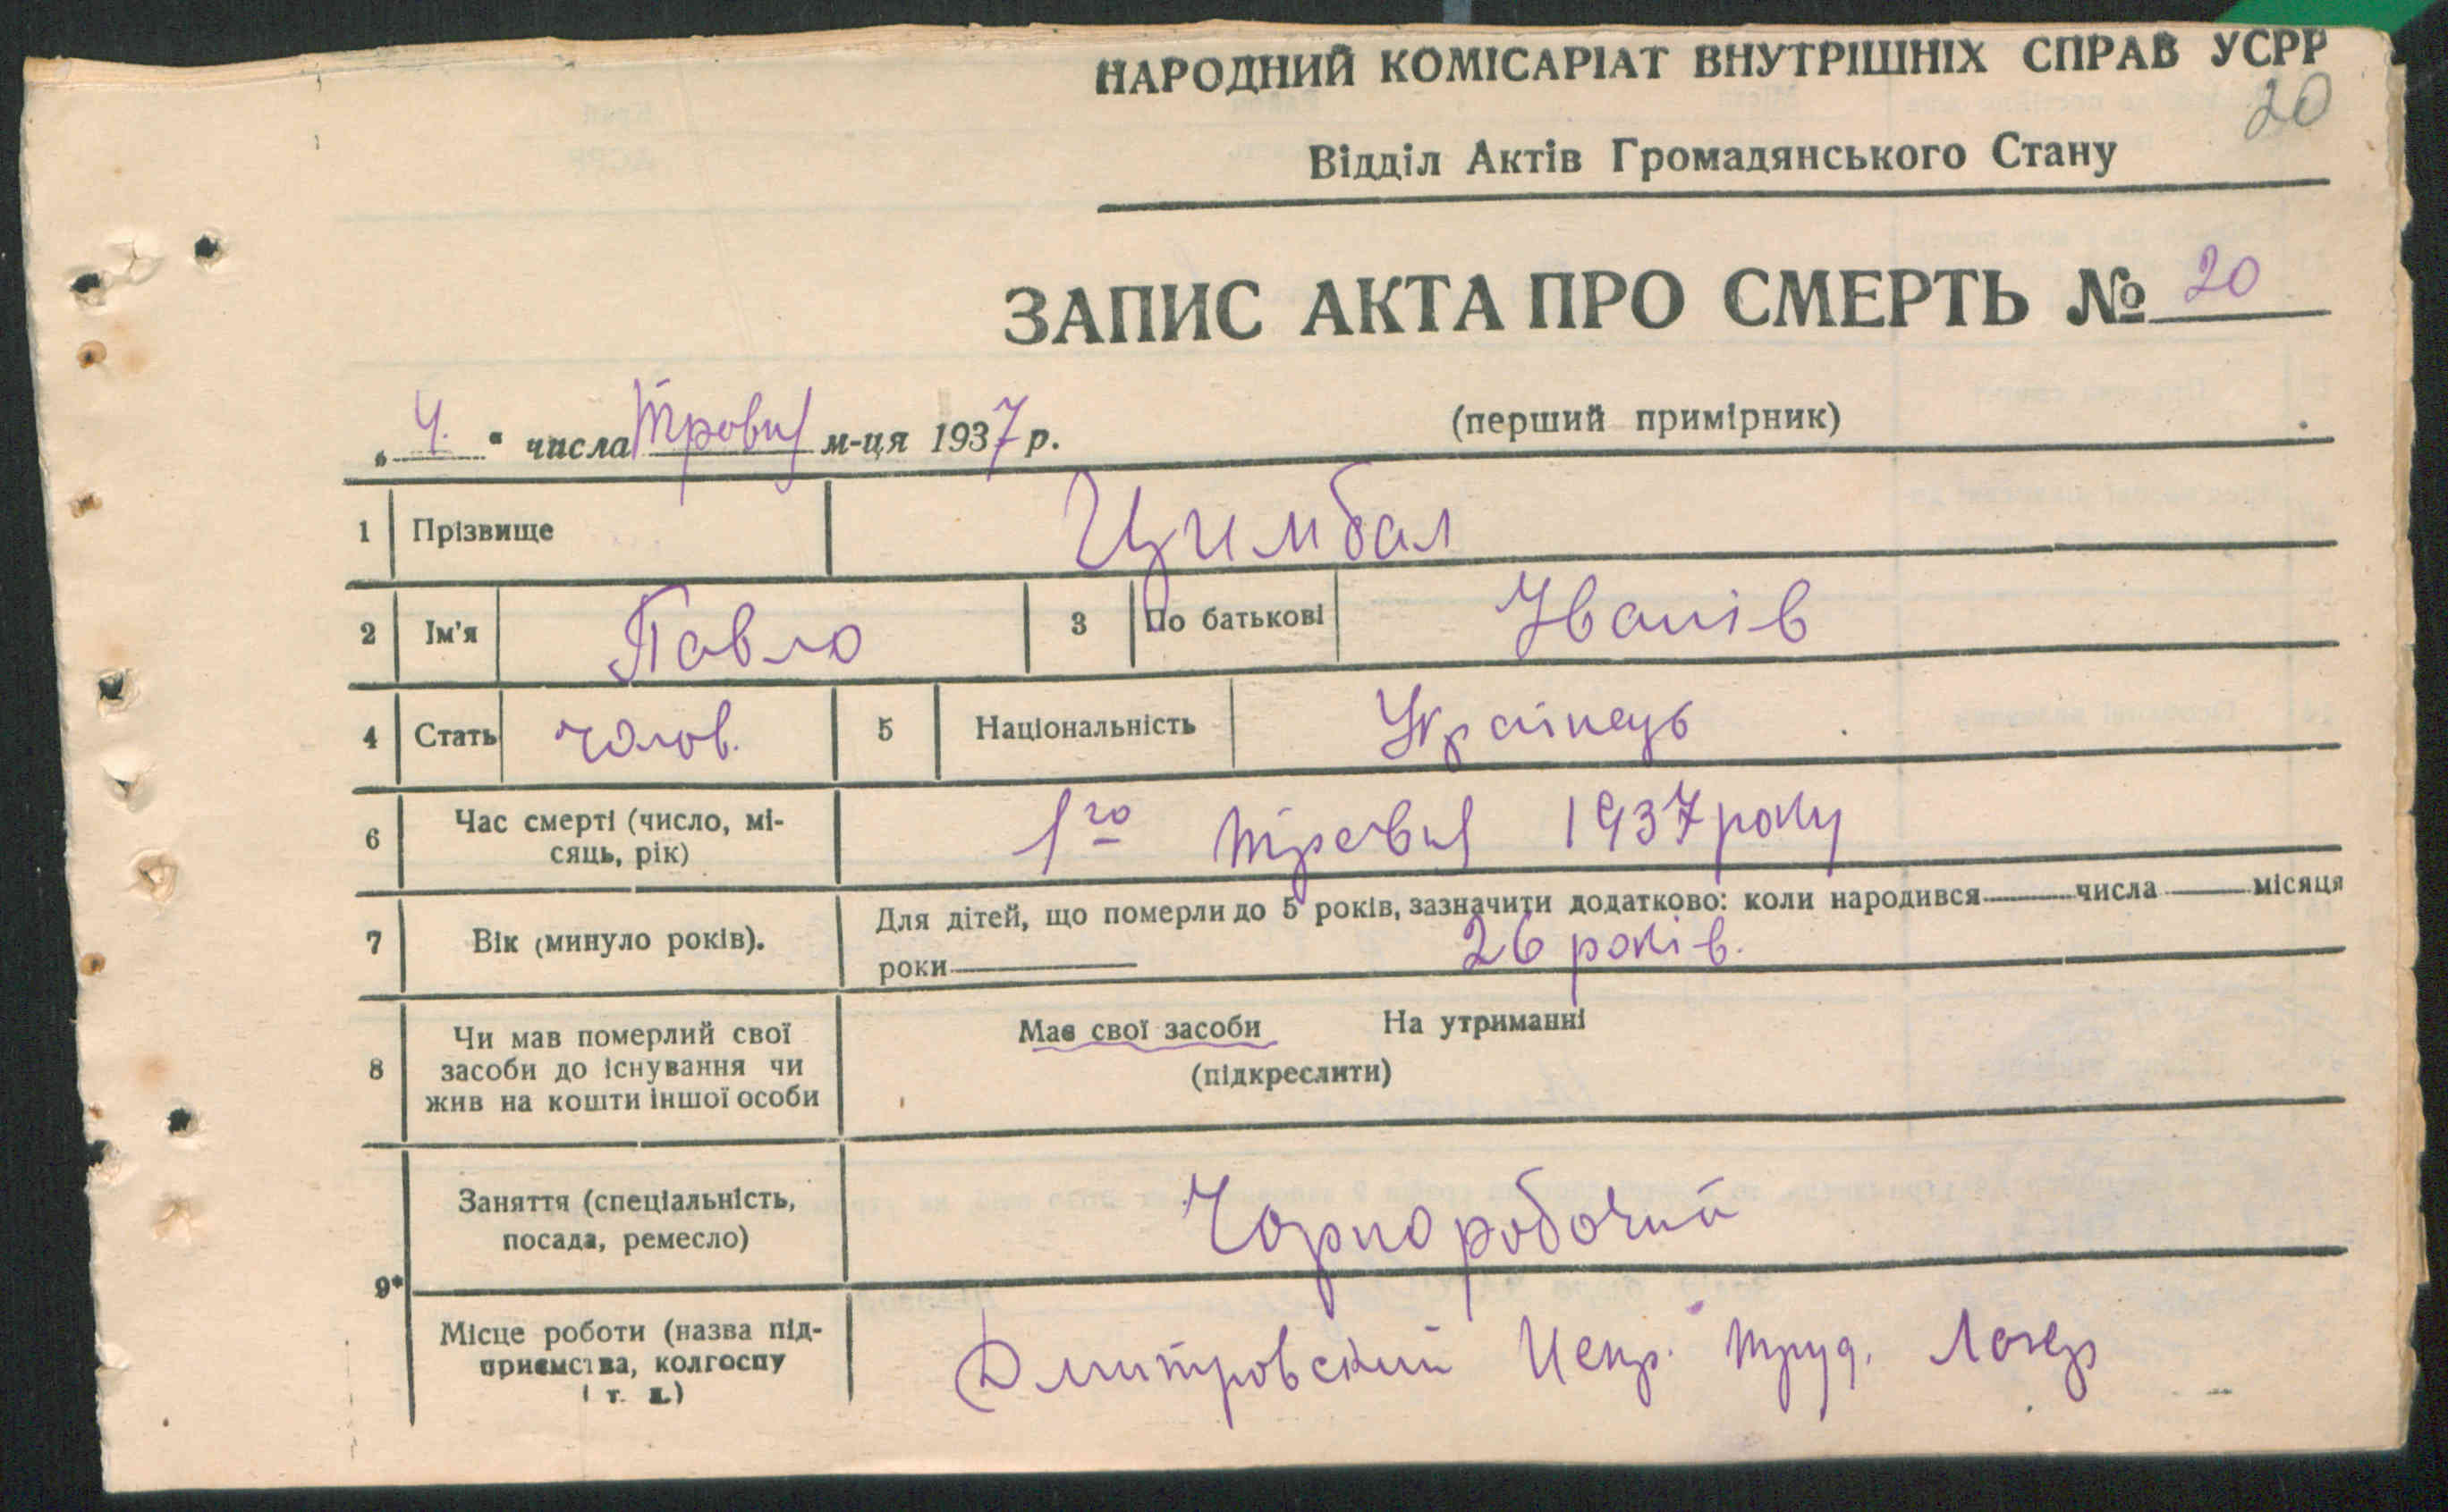 НАРОДНИЙ КОМІСАРІАТ ВНУТРІШНІХ СПРАВ УСРР
20
Відділ Актів Громадянського Стану
ЗАПИС АКТА ПРО СМЕРТЬ № 20
„ 4. " числа Травня м-ця 1937 р.
(перший примірник)
1 Прізвище Цимбал
2 Ім'я Павло 3 По батькові Іванів
4 Стать чолов. 5 Національність Українець
6 Час смерті (число, мі-
сяць, рік) 1го травня 1937 року
7 Вік (минуло років). Для дітей, що померли до 5 років, зазначити додатково: коли народився числа місяця
роки 26 років.
8 Чи мав померлий свої
засоби до існування чи
жив на кошти іншої особи
Має свої засоби На утриманні
(підкреслити)
9* Заняття (спеціальність,
посада, ремесло) Чорноробочий
Місце роботи (назва під-
приємства, колгоспу
і т. д.) Дмитровский Испр. труд. Лагер